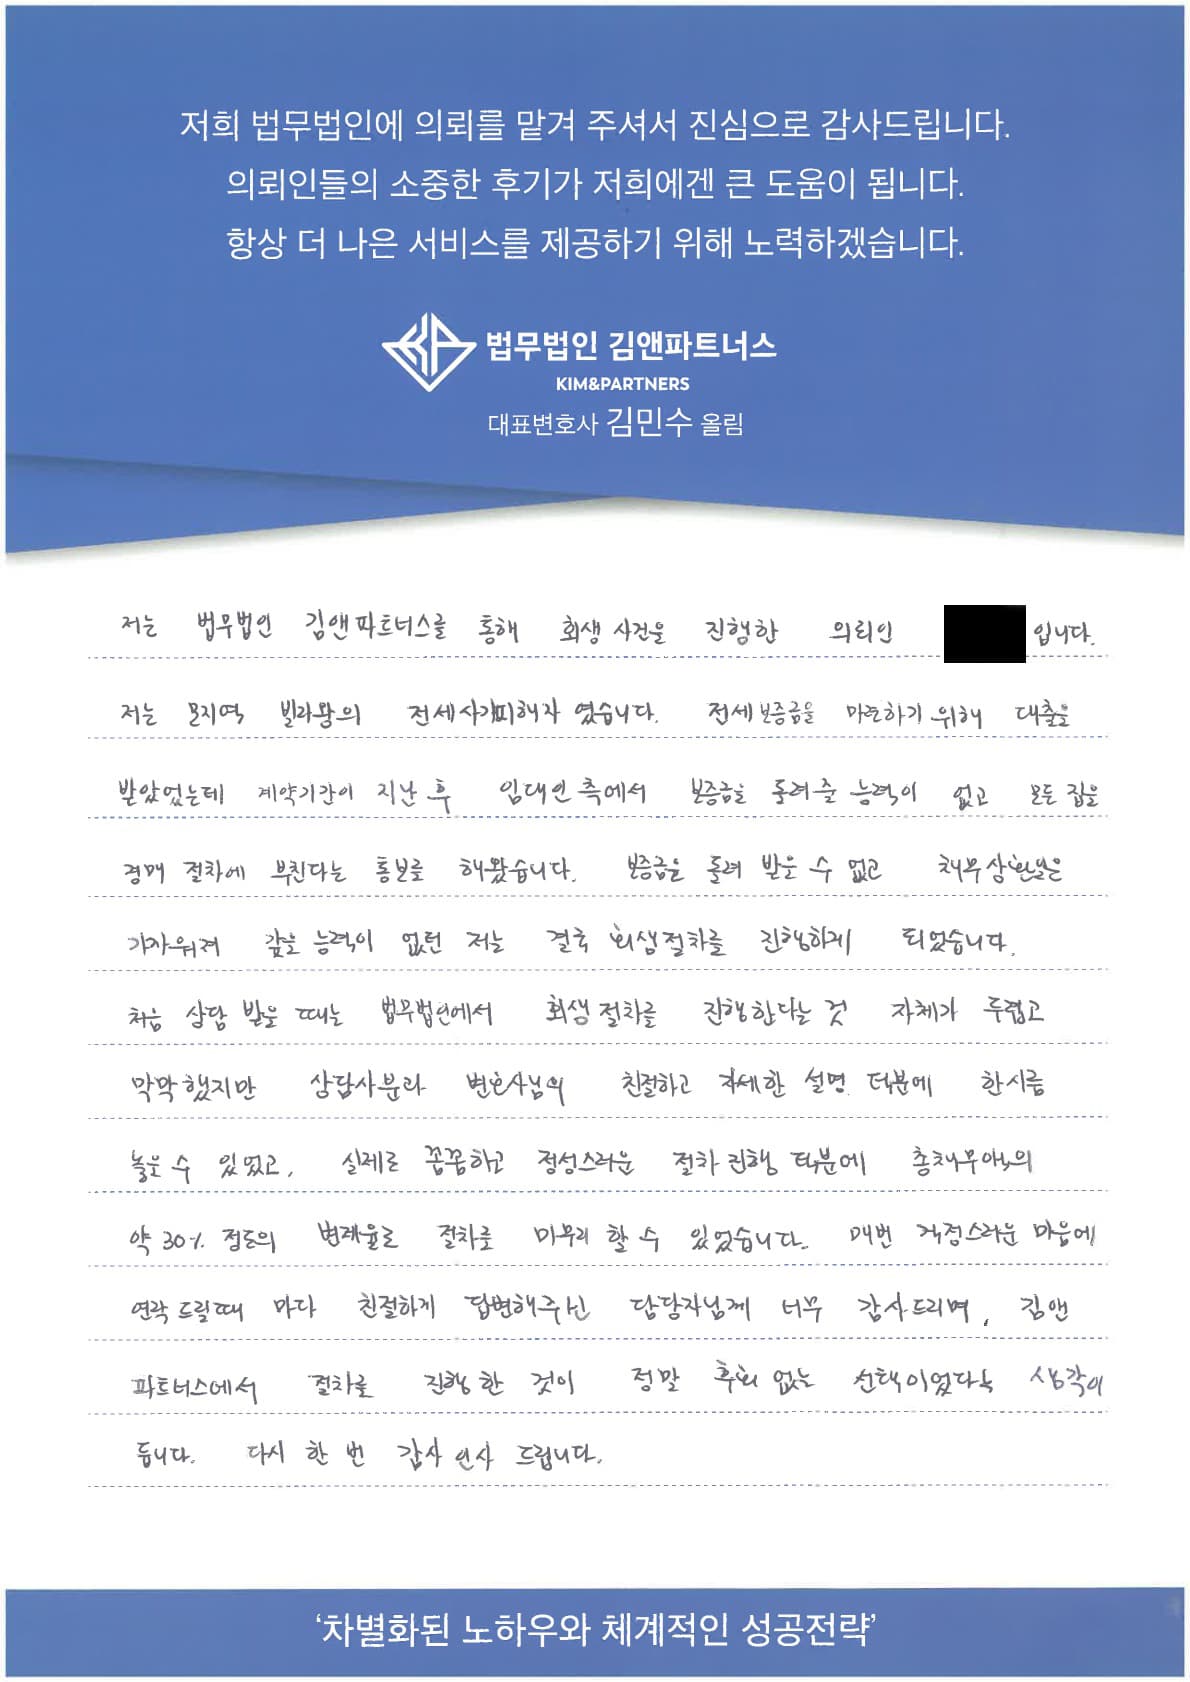 저희 법무법인에 의뢰를 맡겨 주셔서 진심으로 감사드립니다.
의뢰인들의 소중한 후기가 저희에겐 큰 도움이 됩니다.
항상 더 나은 서비스를 제공하기 위해 노력하겠습니다.
법무법인 김앤파트너스
KIM&PARTNERS
대표변호사 김민수 올림
저는 법무법인 김앤파트너스를 통해 회생 사건을 진행한 의뢰인 입니다.
저는 모지역 빌라왕의 전세사기피해자 였습니다. 전세보증금을 마련하기 위해 대출을
받았었는데 계약기간이 지난 후 임대인 측에서 보증금을 돌려줄 능력이 없고 모든 집을
경매 절차에 부친다는 통보를 해왔습니다. 보증금을 돌려 받을 수 없고 채무상환일은
가까워져 갚을 능력이 없던 저는 결국 회생절차를 진행하게 되었습니다.
처음 상담 받을 때는 법무법인에서 회생 절차를 진행한다는 것 자체가 두렵고
막막했지만 상담사분과 변호사님의 친절하고 자세한 설명 덕분에 한시름
놓을 수 있었고, 실제로 꼼꼼하고 정성스러운 절차 진행 덕분에 총채무액의
약 30% 정도의 변제율로 절차를 마무리 할 수 있었습니다. 매번 걱정스러운 마음에
연락 드릴때 마다 친절하게 답변해주신 담당자님께 너무 감사드리며, 김앤
파트너스에서 절차를 진행 한 것이 정말 후회 없는 선택이었다는 생각이
듭니다. 다시 한 번 감사 인사 드립니다.
‘차별화된 노하우와 체계적인 성공전략’